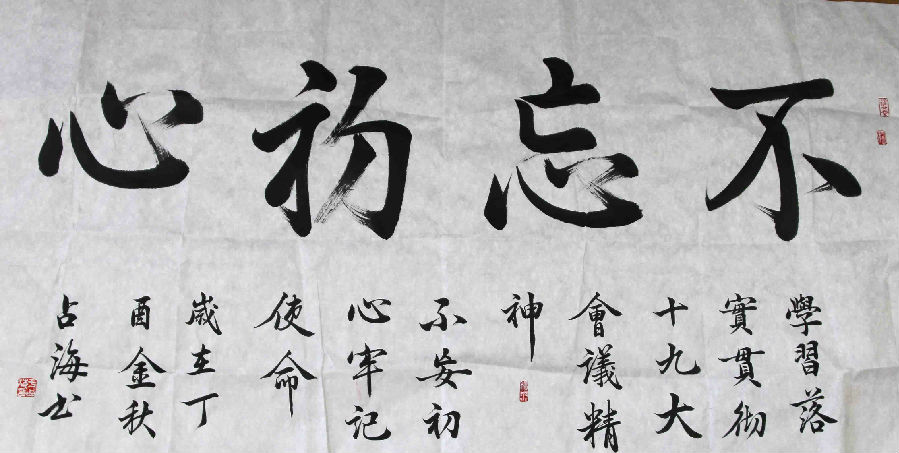 不忘初心
學習落
實貫彻
十九大
會議精
神
不妄初
心牢记
使命
歲在丁
酉金秋
占海书